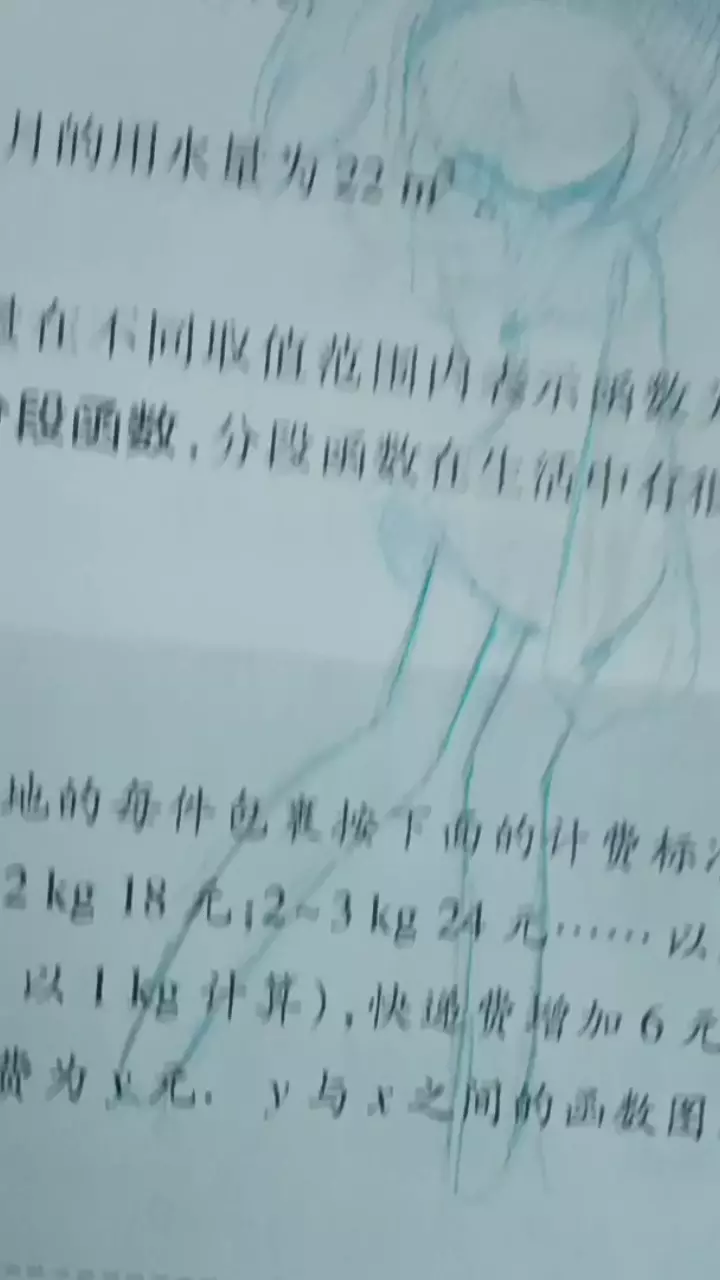 月的用水量为 22 m³
在不同取值范围内表示函数
段函数,分段函数在生活中有
地的每件包裹按下面的计费标
2 kg 18 元;2~3 kg 24 元……以
以 1 kg 计算),快递费增加 6 元
费为 y 元. y 与 x 之间的函数图